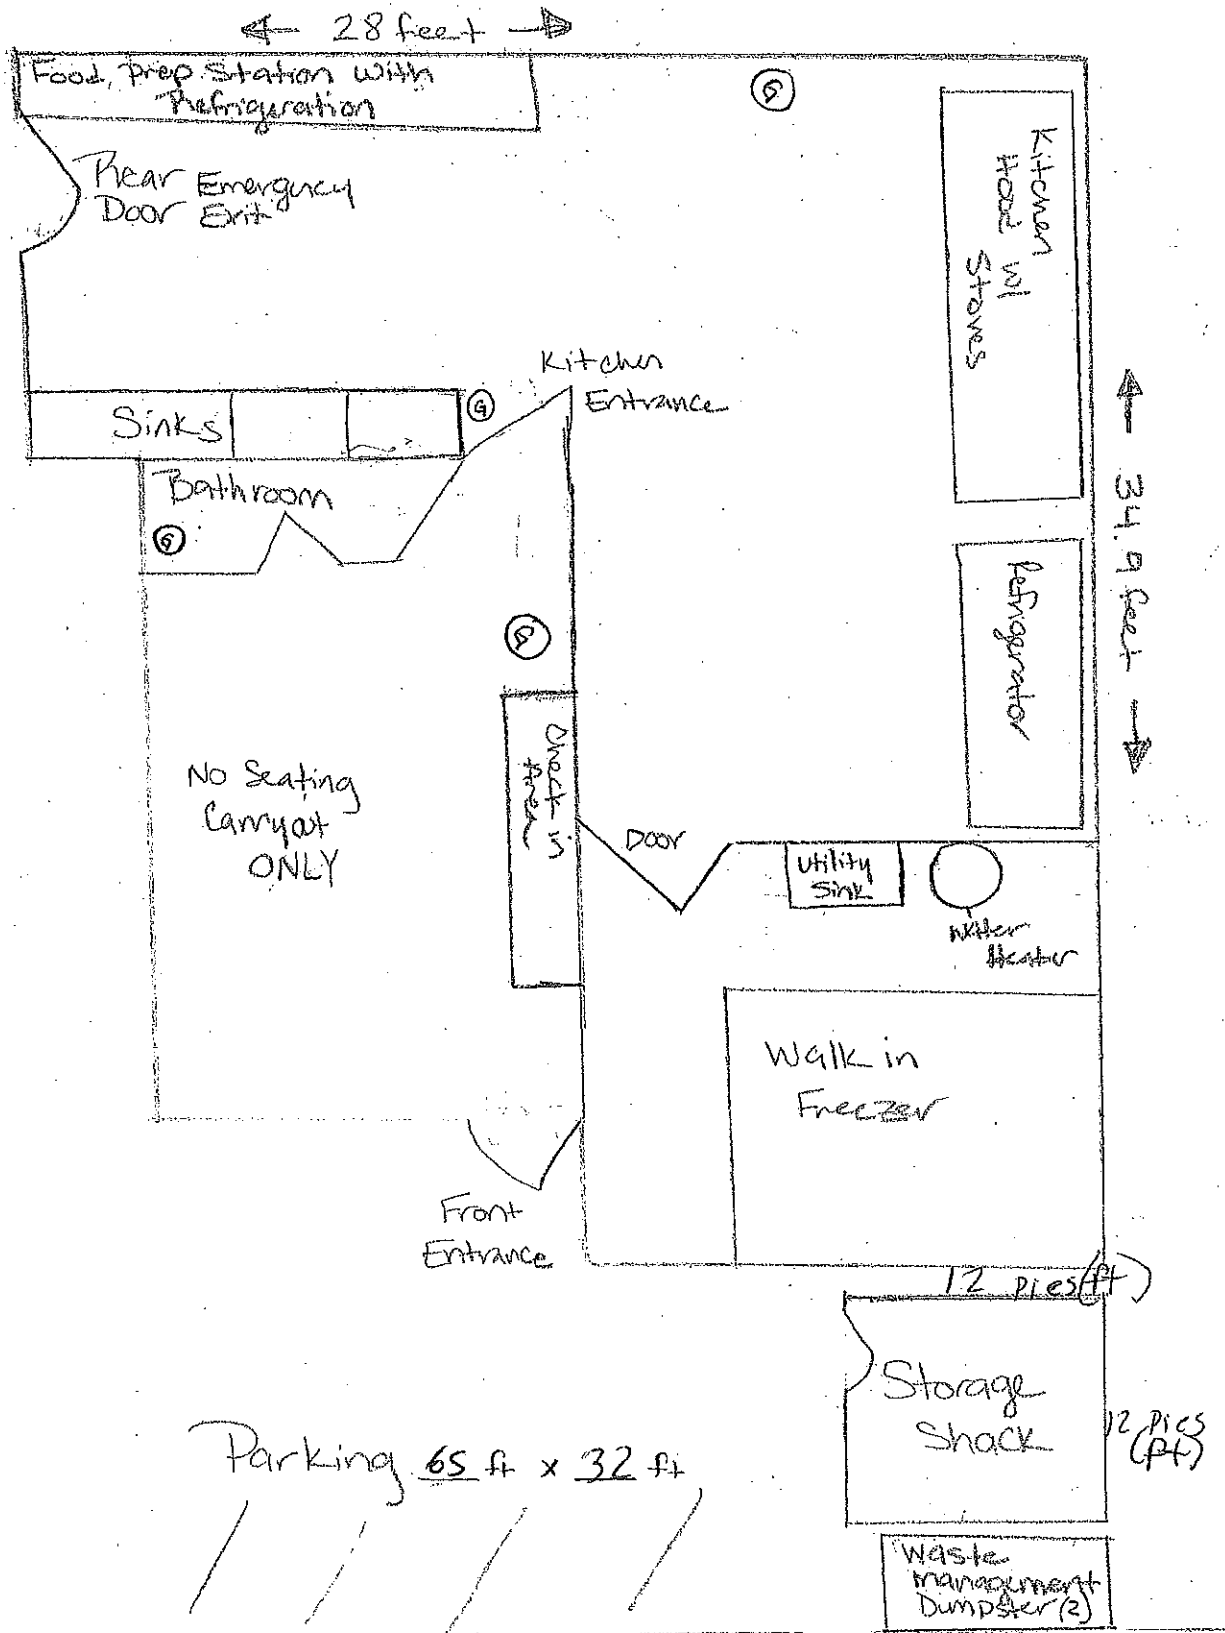 28 feet
Food, Prep Station with
Refrigeration
G
Kitchen
Hood w/
Stoves
Rear Emergency
Door Exit
Kitchen
Entrance
Sinks
G
Bathroom
G
34.9 feet
Refrigerator
G
Check in
Area
No Seating
Carryout
ONLY
Door
Utility
Sink
Water
Heater
Walk in
Freezer
Front
Entrance
12 pies (ft)
Storage
Shack
12 Pies
(ft)
Parking 65 ft x 32 ft
Waste
Management
Dumpster (2)